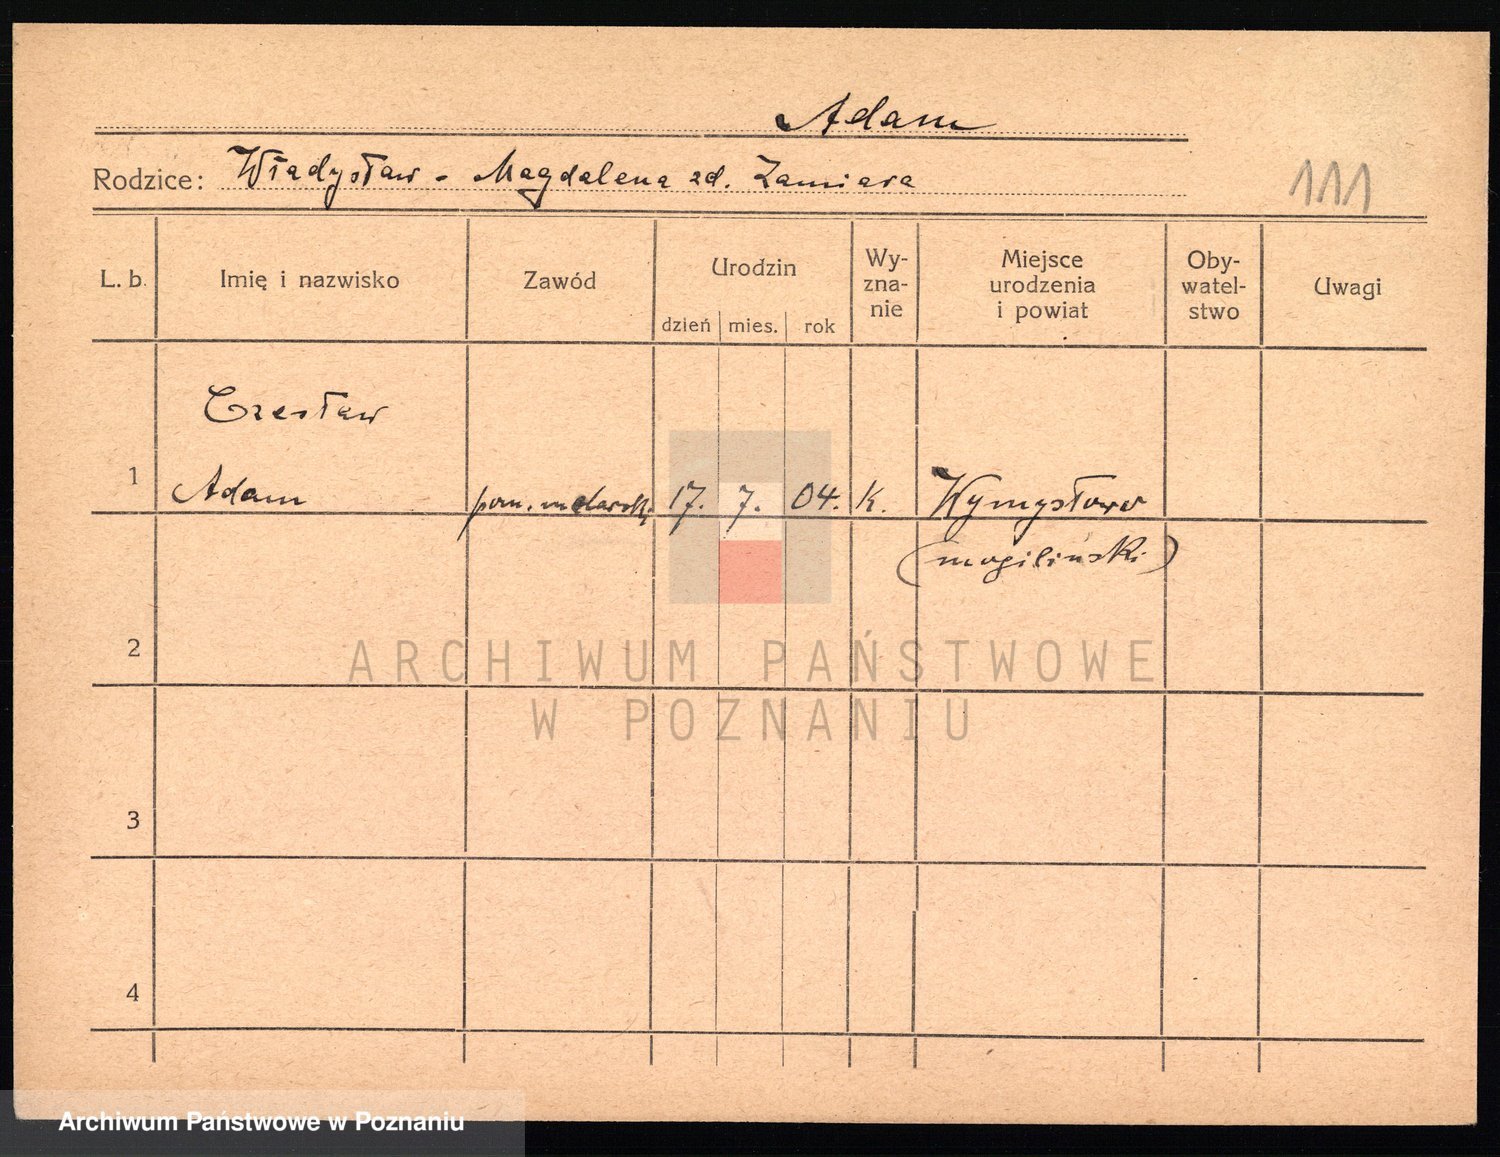 Adam
Rodzice: Władysław - Magdalena zd. Zamiara
111
L. b.
Imię i nazwisko
Zawód
Urodzin
dzień mies. rok
Wy-
zna-
nie
Miejsce
urodzenia
i powiat
Oby-
watel-
stwo
Uwagi
Czesław
1 Adam pom. malarski 17. 7. 04. k. Wymysłowo
(mogiliński)
2
ARCHIWUM PAŃSTWOWE
W POZNANIU
3
4
Archiwum Państwowe w Poznaniu